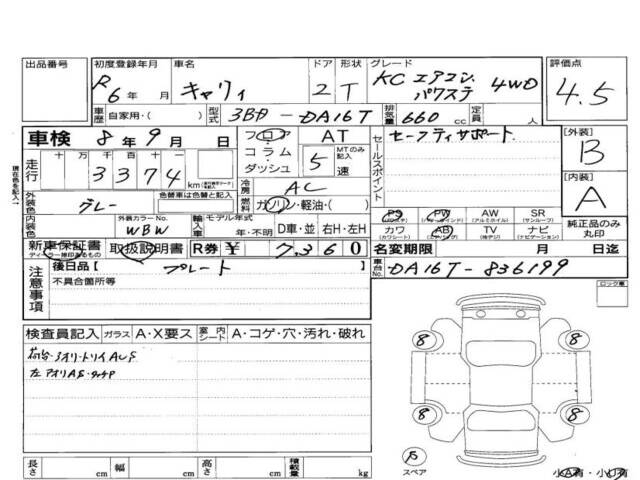 出品番号 初度登録年月 車名 ドア 形状 グレード 評価点
R6年 月 キャリィ 2 T KC エアコン パワステ 4WD 4.5
車歴 自家用・( ) 型式 3BD-DA16T 排気量 660cc 定員 人
車検 8年9月 日 フロア AT セールスポイント セーフティサポート [外装] B
コラム MTのみ記入
ダッシュ 5速
走行 十万 万 千 百 十 一
3 3 7 4 km
冷房 AC [内装] A
外装色 グレー 色替車は色替と記入 燃料 ガソリン・軽油・( )
PS PW AW SR
(パワステ) (パワーウインド) (アルミホイル) (サンルーフ)
内装色 外装カラーNo. WBW 輸入車 モデル年式 年・不明 D車・並 右H・左H
カワ AB TV ナビ 純正品のみ丸印
(カワシート) (エアバック) (テレビ) (ナビゲーション)
新車保証書 取扱説明書 R券 ¥ 7,360 名変期限 月 日迄
ディーラー捺印あるもの
注意事項 後日品[ プレート ] 車台No. DA16T-836199
不具合箇所等
ロック車
現在色を記入
検査員記入 ガラス A・X要ス 室内シート A・コゲ・穴・汚れ・破れ
8 8
8 8
スペア
長さ cm 幅 cm 高さ cm 積載量 kg
小A有・小U有